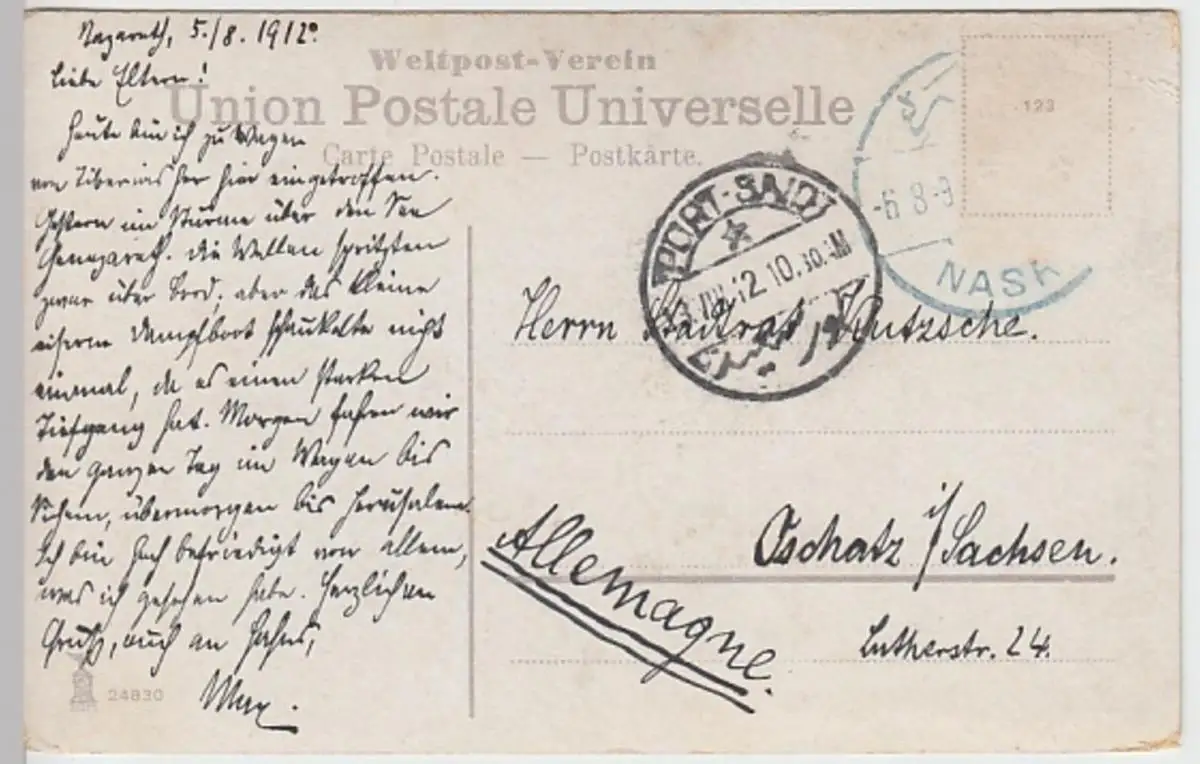 Nazareth, 5./8. 1912.
Liebe Eltern!
Heute bin ich zu Wagen
von Tiberias her hier eingetroffen.
Gestern im Sturme über den See
Genezareth. Die Wellen spritzten
zwar über Bord, aber das kleine
eiserne Dampfboot schaukelte nicht
einmal, da es einen starken
Tiefgang hat. Morgen fahren wir
den ganzen Tag im Wagen bis
Sichem, übermorgen bis Jerusalem.
Ich bin hoch befriedigt von allem,
was ich gesehen habe. Herzlichen
Gruß, auch an
Max.
24830
Weltpost-Verein
Union Postale Universelle
Carte Postale — Postkarte.
123
-6 8-9
NASR
PORT-SAID
VIII 12 10.30 AM
بورسعيد
Herrn Stadtrat Nutzsche.
Oschatz i/Sachsen.
Lutherstr. 24.
Allemagne.